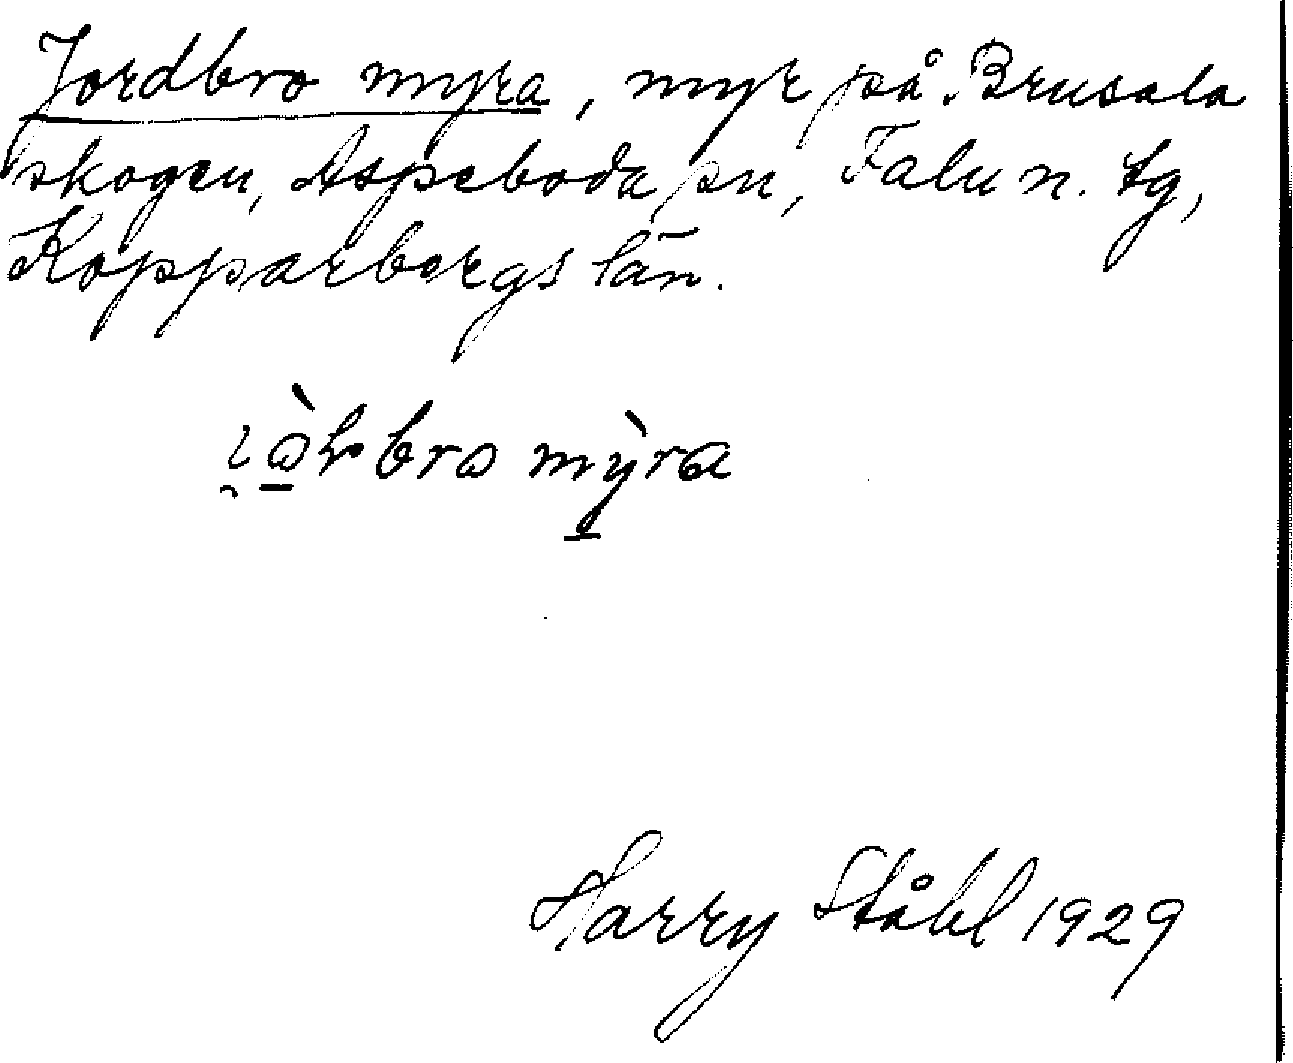 Jordbro myra, myr på Brusala
skogen, Aspeboda sn, Falu n. tg,
Kopparbergs län.
bro mỳra
Harry Ståhl 1929